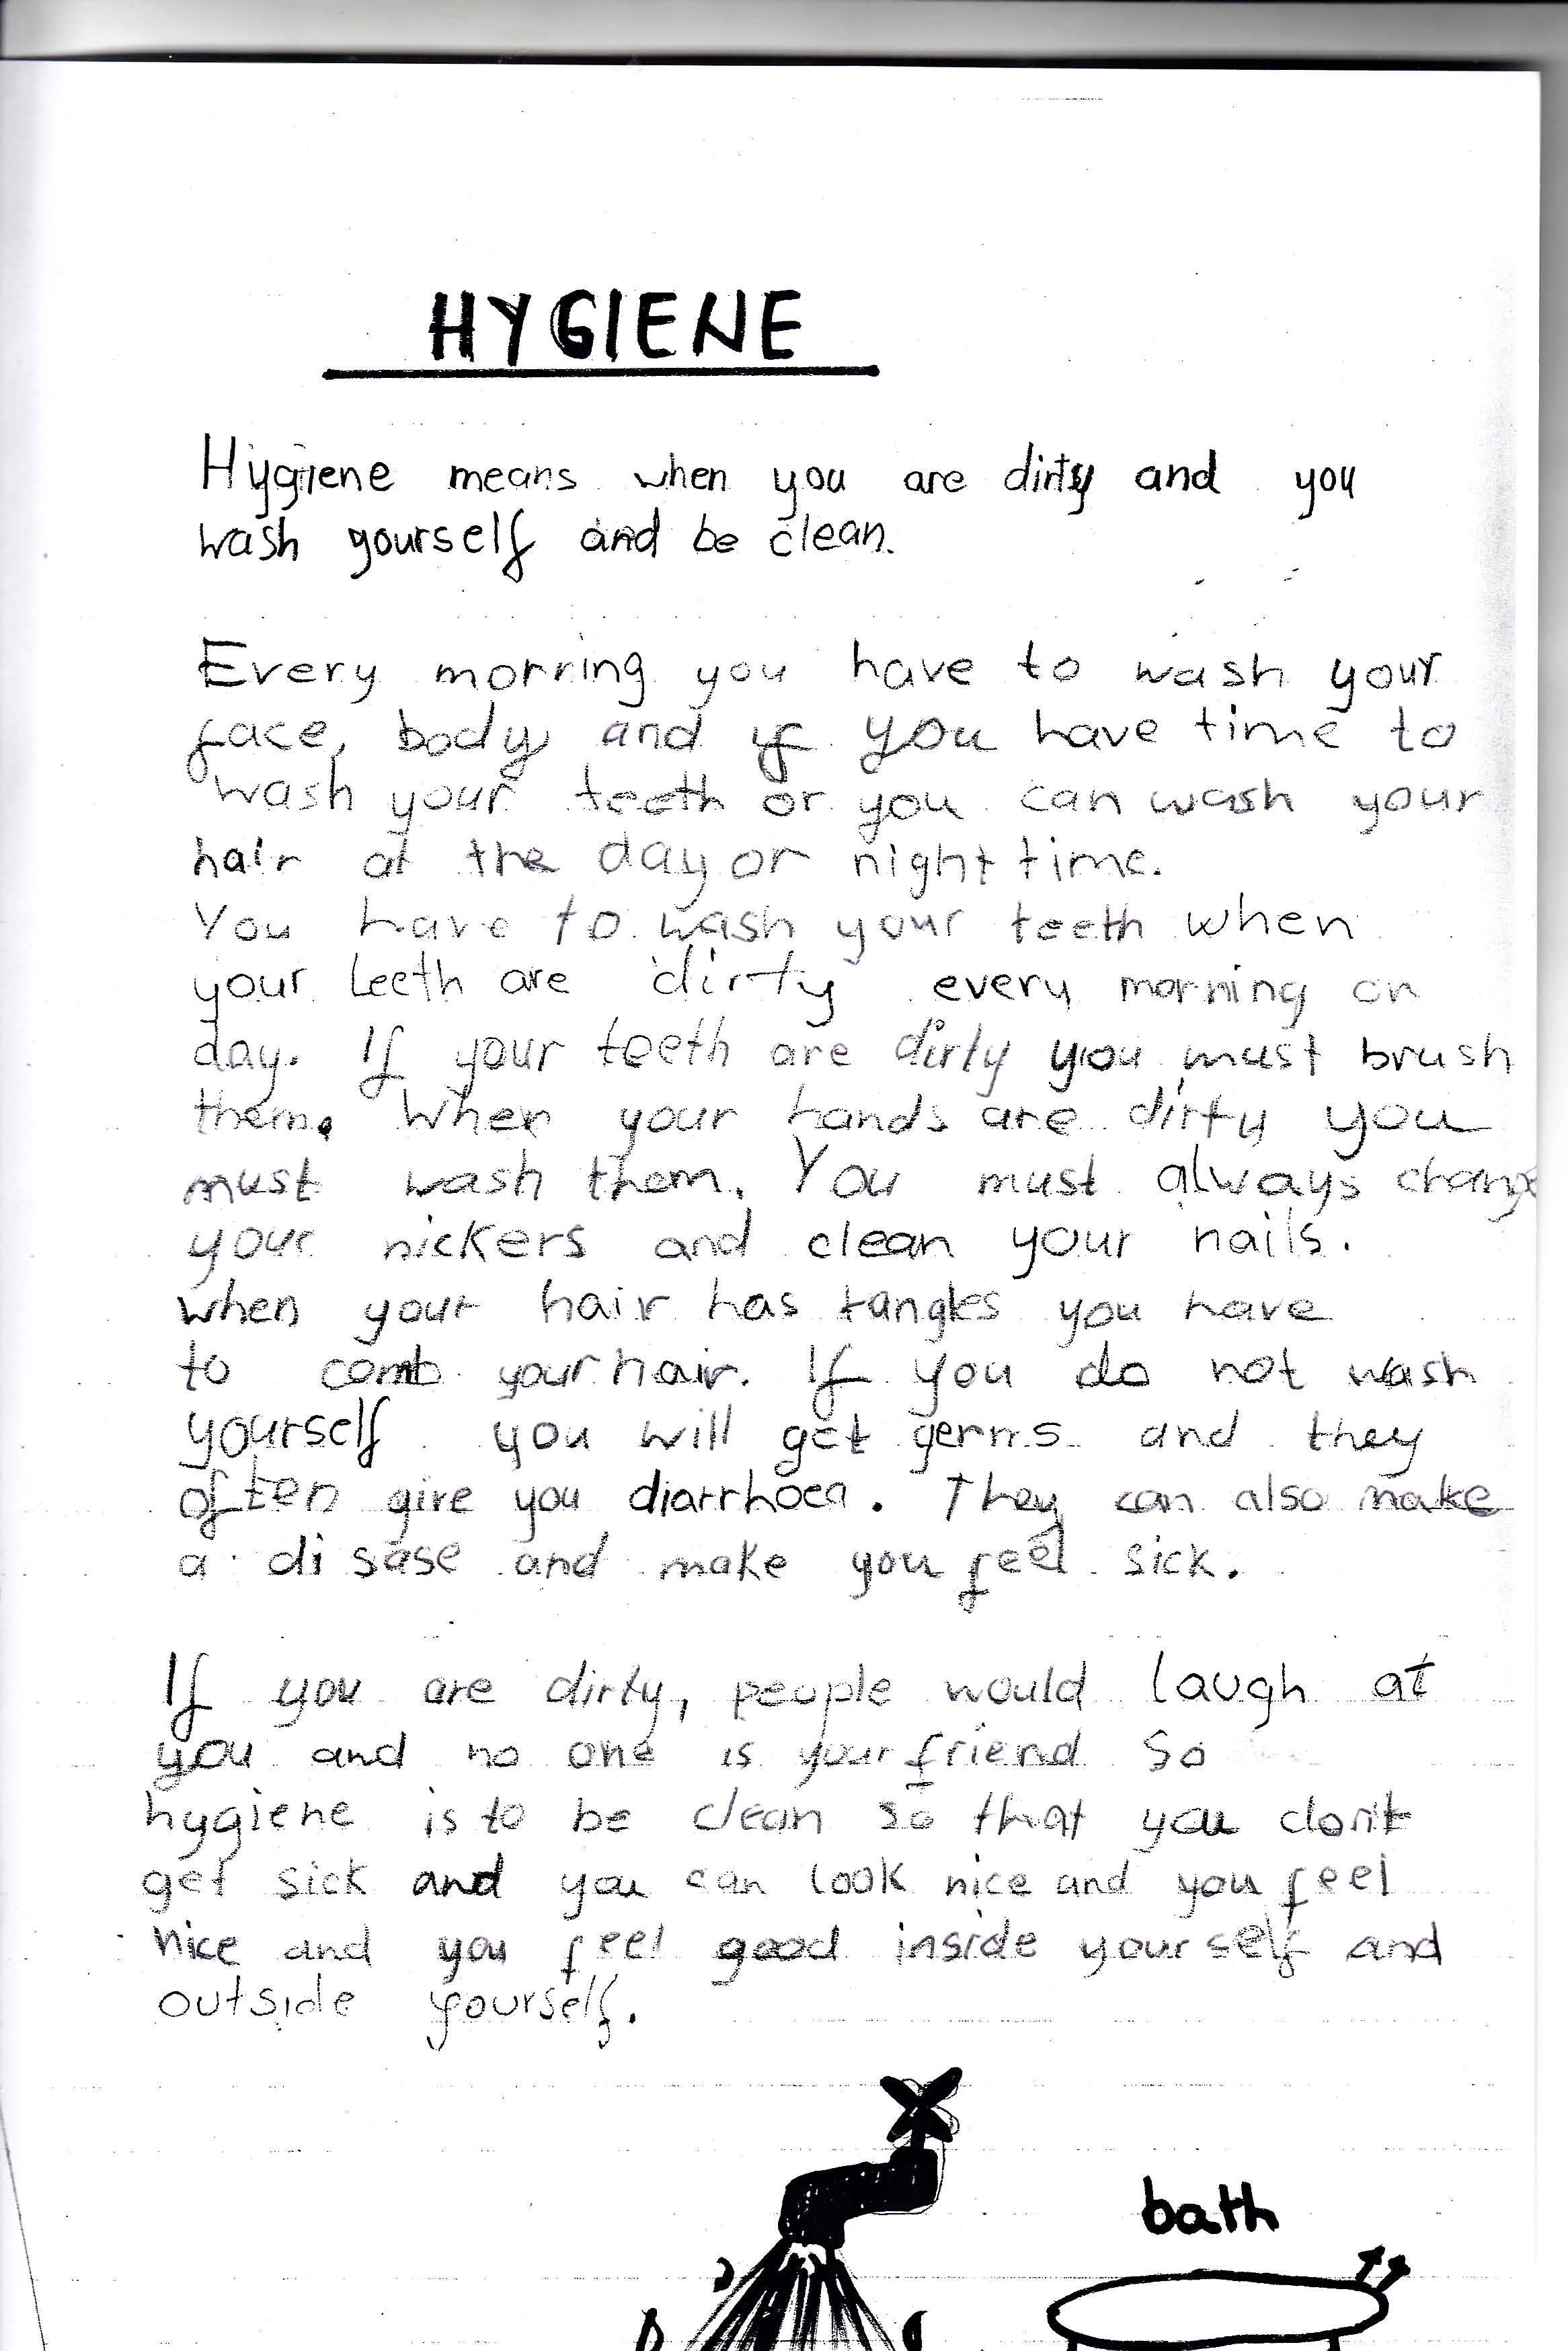 HYGIENE
Hygiene means when you are dirty and you
wash yourself and be clean.
Every morning you have to wash your
face, body and if you have time to
wash your teeth or you can wash your
hair at the day or night time.
You have to wash your teeth when
your teeth are dirty every morning or
day. If your teeth are dirty you must brush
them. When your hands are dirty you
must wash them. You must always change
your nickers and clean your nails.
when your hair has tangles you have
to comb your hair. If you do not wash
yourself you will get germs and they
often give you diarrhoea. They can also make
a disase and make you feel sick.
If you are dirty, people would laugh at
you and no one is your friend so
hygiene is to be clean so that you don't
get sick and you can look nice and you feel
nice and you feel good inside yourself and
outside yourself.
bath